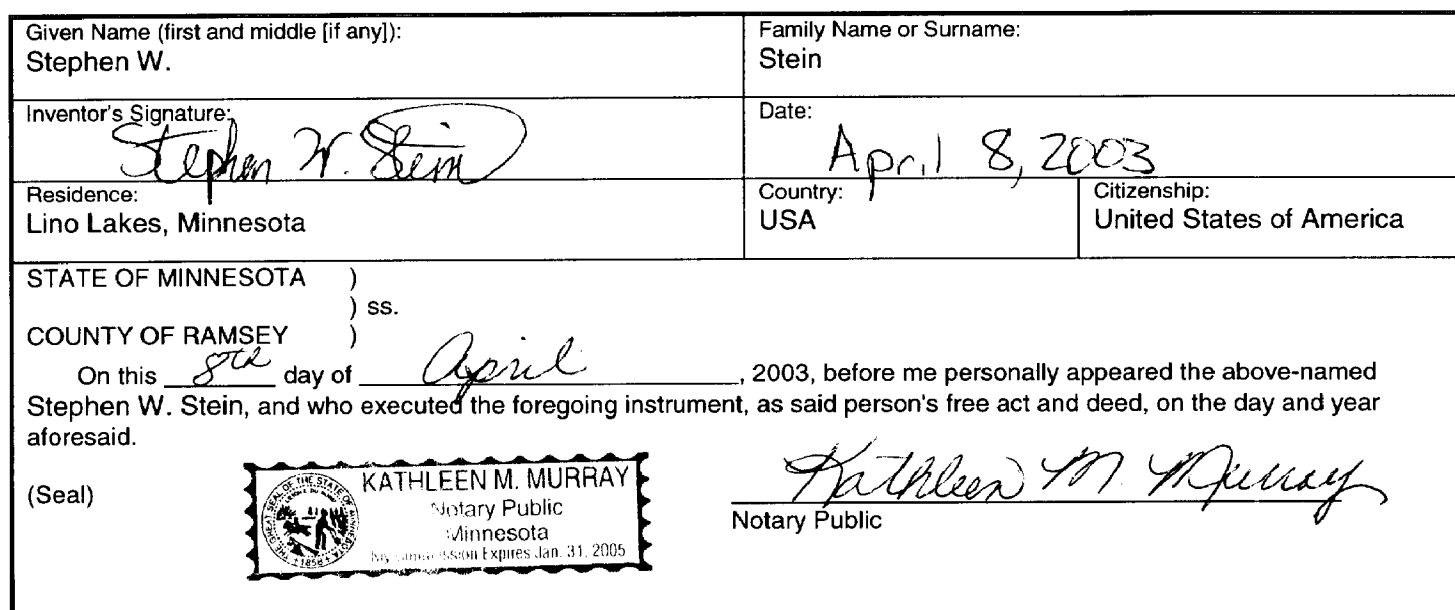 Given Name (first and middle [if any]):
Stephen W.
Family Name or Surname:
Stein
Inventor's Signature:
Stephen W. Stein
Date:
April 8, 2003
Residence:
Lino Lakes, Minnesota
Country:
USA
Citizenship:
United States of America
STATE OF MINNESOTA )
) ss.
COUNTY OF RAMSEY )
On this 8th day of April, 2003, before me personally appeared the above-named
Stephen W. Stein, and who executed the foregoing instrument, as said person's free act and deed, on the day and year
aforesaid.
(Seal)
THE GREAT SEAL OF THE STATE OF MINNESOTA
1858
KATHLEEN M. MURRAY
Notary Public
Minnesota
My Commission Expires Jan. 31, 2005
Kathleen M. Murray
Notary Public